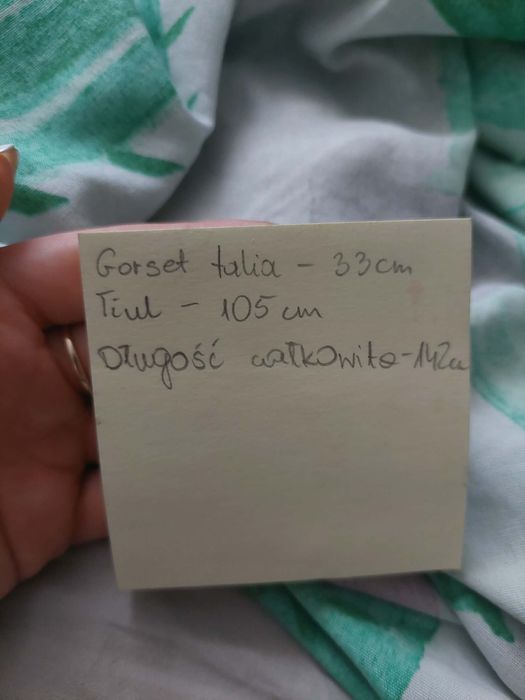 Gorset talia - 33cm
Tiul - 105 cm
Długość całkowita - 142cm